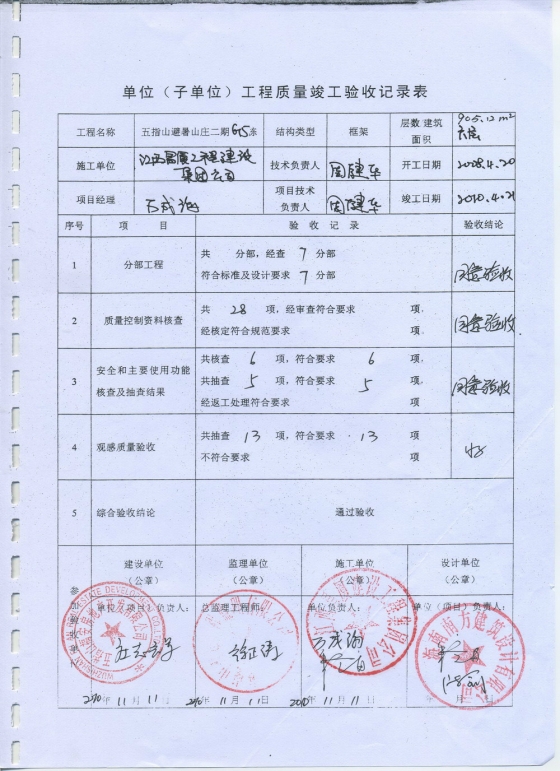 单位（子单位）工程质量竣工验收记录表
工程名称 五指山避暑山庄二期 结构类型 框架 层数 建筑面积 905.12 m²
施工单位 技术负责人 周健华 开工日期 2008.4.20
项目经理 万成海 项目技术负责人 周健华 竣工日期 2010.4.21
序号 项 目 验 收 记 录 验收结论
1 分部工程 共 分部，经查 7 分部
符合标准及设计要求 7 分部 同意验收
2 质量控制资料核查 共 28 项，经审查符合要求 项，
经核定符合规范要求 项 同意验收
3 安全和主要使用功能核查及抽查结果 共核查 6 项，符合要求 6 项，
共抽查 5 项，符合要求 5 项，
经返工处理符合要求 项 同意验收
4 观感质量验收 共抽查 13 项，符合要求 13 项
不符合要求 项 好
5 综合验收结论 通过验收
建设单位（公章） 监理单位（公章） 施工单位（公章） 设计单位（公章）
单位（项目）负责人： 总监理工程师： 单位（项目）负责人：
海南南方建筑设计有限公司
2010年 11月 11日 2010年 11月 11日 2010年 11月 11日 年 月 日